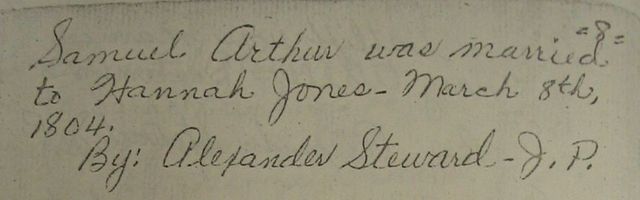 =8=
Samuel Arthur was married
to Hannah Jones - March 8th,
1804.
By: Alexander Steward - J. P.